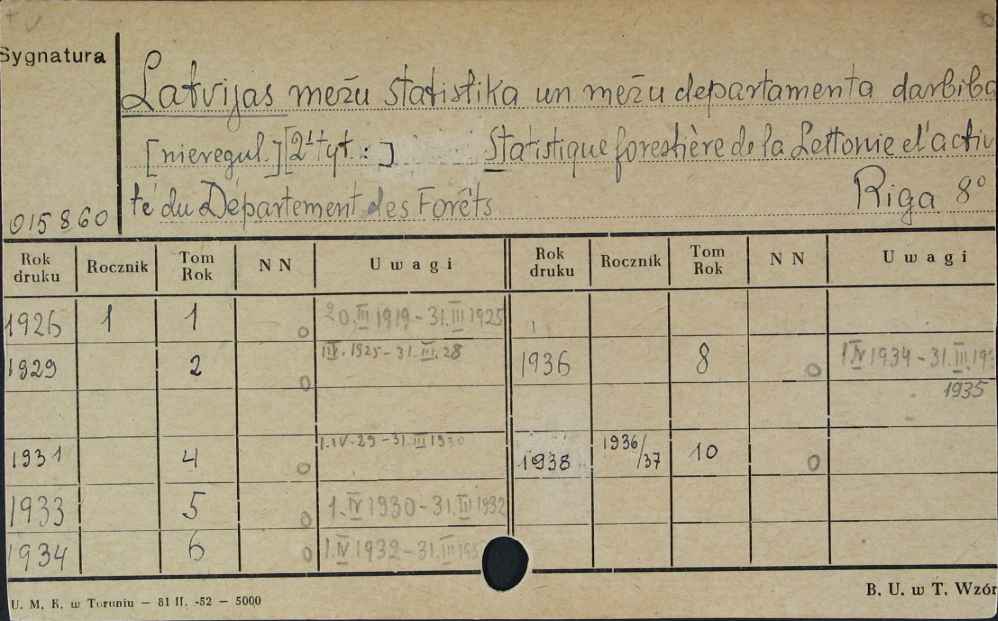 Sygnatura
Latvijas mežu statistika un mežu departamenta darbiba
[nieregul.][2-i tyt.:] Statistique forestière de la Lettonie et l'activi
té du Département des Forêts
Riga 8°
015860
Rok druku Rocznik Tom Rok N N Uwagi Rok druku Rocznik Tom Rok N N Uwagi
1926 1 1 0 20.III 1919-31.III 1925
1929 2 0 1.IV.1925-31.III.28 1936 8 0 1 IV 1934-31.III.
1935
1931 4 0 1.IV-29-31.III 1930 1938 1936/37 10 0
1933 5 0 1.IV 1930-31.III 1932
1934 6 0 1.IV 1932-31.III
U. M. K. w Toruniu — 81 II. -52 — 5000
B. U. w T. Wzór